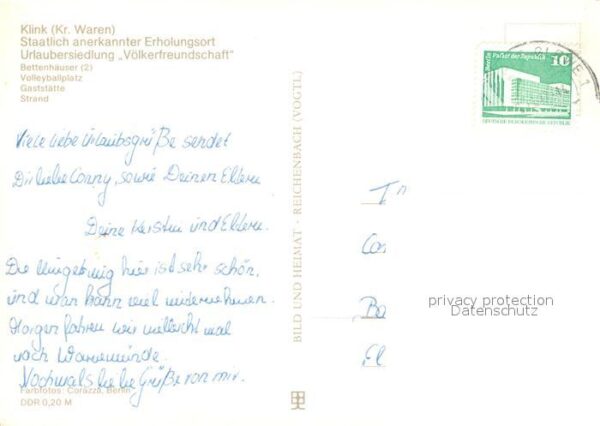 Klink (Kr. Waren)
Staatlich anerkannter Erholungsort
Urlaubersiedlung „Völkerfreundschaft"
Bettenhäuser (2)
Volleyballplatz
Gaststätte
Strand
Viele liebe Urlaubsgrüße sendet
Dir liebe Conny, sowie Deinen Eltern
Deine Kerstin und Eltern.
Die Umgebung hier ist sehr schön,
und man kann viel unternehmen.
Morgen fahren wir vielleicht mal
nach Warnemünde.
Nochmals liebe Grüße von mir.
Farbfotos: Corazza, Berlin
DDR 0,20 M
BILD UND HEIMAT · REICHENBACH (VOGTL)
Berlin, Palast der Republik
10
DEUTSCHE DEMOKRATISCHE REPUBLIK
privacy protection
Datenschutz